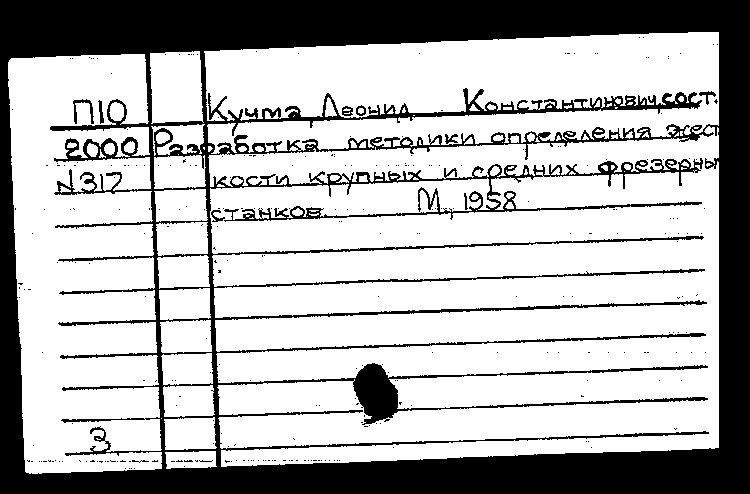 П10 Кучма, Леонид Константинович, сост.
2000 Разработка методики определения жест
N317 кости крупных и средних фрезерны
станков. М., 1958
3